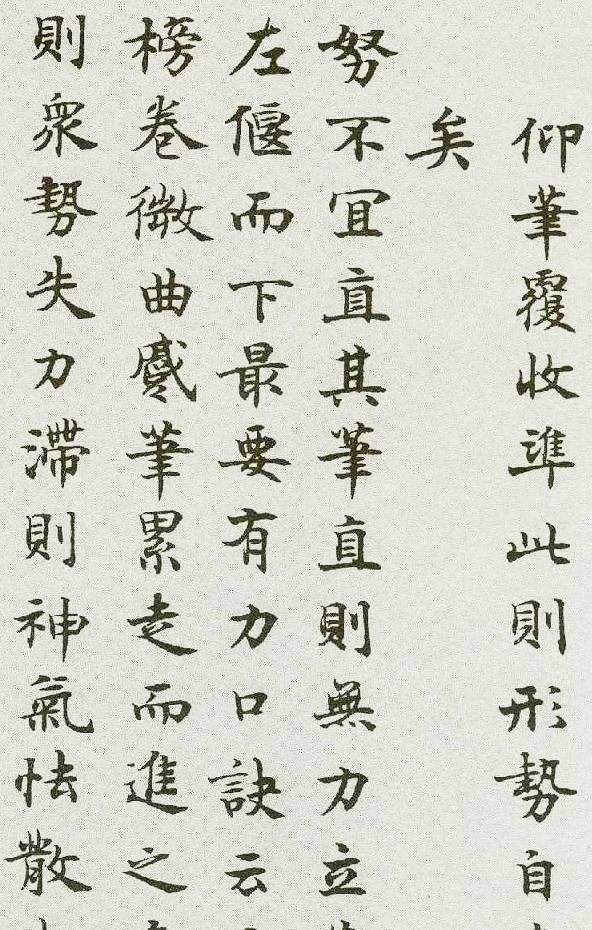 仰筆覆收準此則形勢自
矣
努不宜直其筆直則無力立
左偃而下最要有力口訣云
榜卷微曲蹙筆累走而進之
則衆勢失力滯則神氣怯散